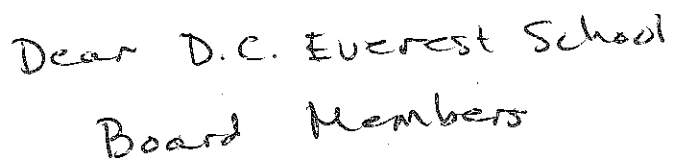 Dear D.C. Everest School
Board Members